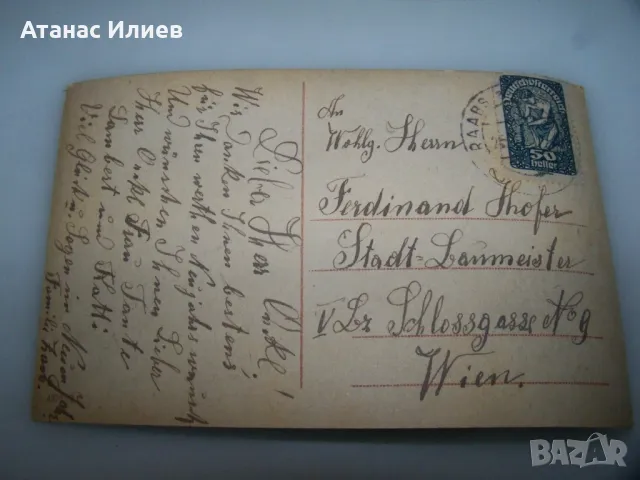 Атанас Илиев
Lieber Herr Onkel!
Wir Danken Ihnen bestens
für Ihren werthen Neujahrswunsch
Und wünschen Ihnen Lieber
Herr Onkel Frau Tante
Lambert und Katti
Viel Glück u. Segen im Neuen Jahr
Familie
RAABS
Deutschösterreich
50
heller
An
Wohlg. Herrn
Ferdinand Hofer
Stadt-Baumeister
V Bz Schlossgasse No 9
Wien.
BAZAR